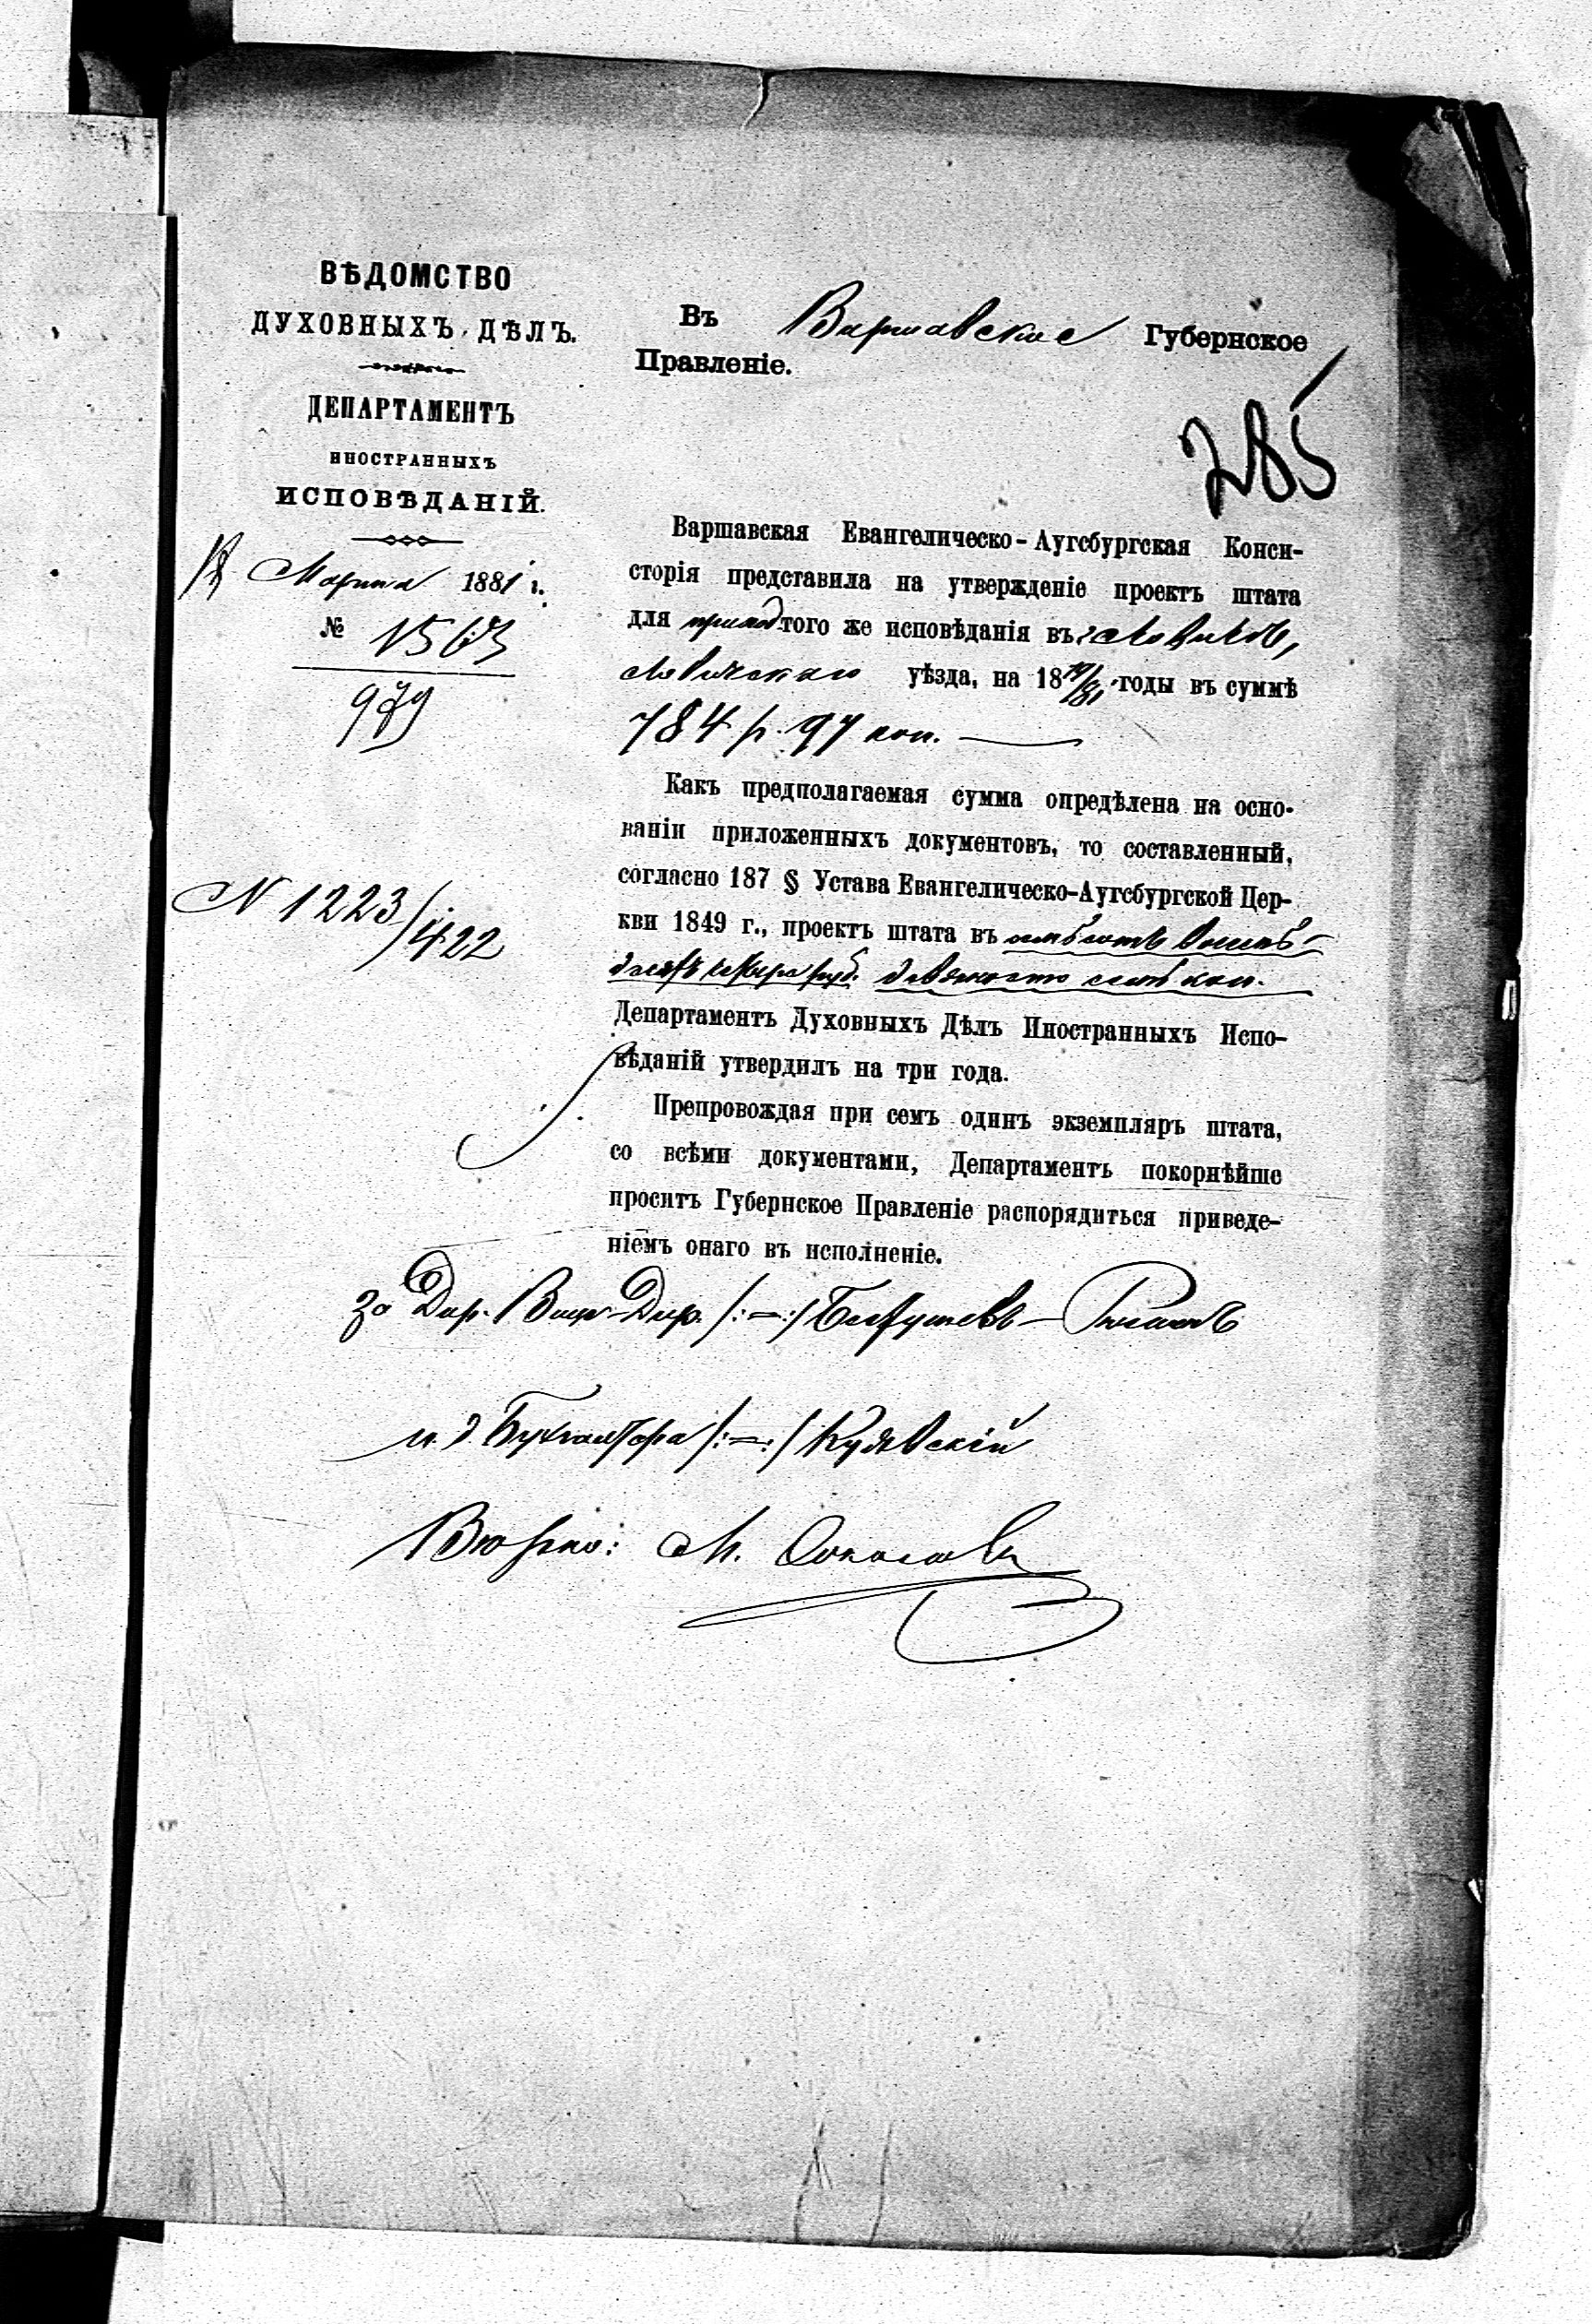 ВѢДОМСТВО
ДУХОВНЫХЪ ДѢЛЪ.
ДЕПАРТАМЕНТЪ
ИНОСТРАННЫХЪ
ИСПОВѢДАНІЙ.
Марта 1881 г.
№ 1563
979
N 1223/422
Въ Варшавское Губернское
Правленіе.
285
Варшавская Евангелическо-Аугсбургская Конси-
сторія представила на утвержденіе проектъ штата
для приход. того же исповѣданія въ г. Ловичѣ,
Ловичскаго уѣзда, на 1879/81 годы въ суммѣ
784 р. 97 коп.
Какъ предполагаемая сумма опредѣлена на осно-
ваніи приложенныхъ документовъ, то составленный,
согласно 187 § Устава Евангелическо-Аугсбургской Цер-
кви 1849 г., проектъ штата въ семьсотъ восемь-
десятъ четыре руб. девяносто семь коп.
Департаментъ Духовныхъ Дѣлъ Иностранныхъ Испо-
вѣданій утвердилъ на три года.
Препровождая при семъ одинъ экземпляръ штата,
со всѣми документами, Департаментъ покорнѣйше
проситъ Губернское Правленіе распорядиться приведе-
ніемъ онаго въ исполненіе.
За Дир. Вице-Дир. /:—:/ Бестужевъ-Рюминъ
и. д. Бухгалтера /:—:/ Кудявскій
Вѣрно: М.